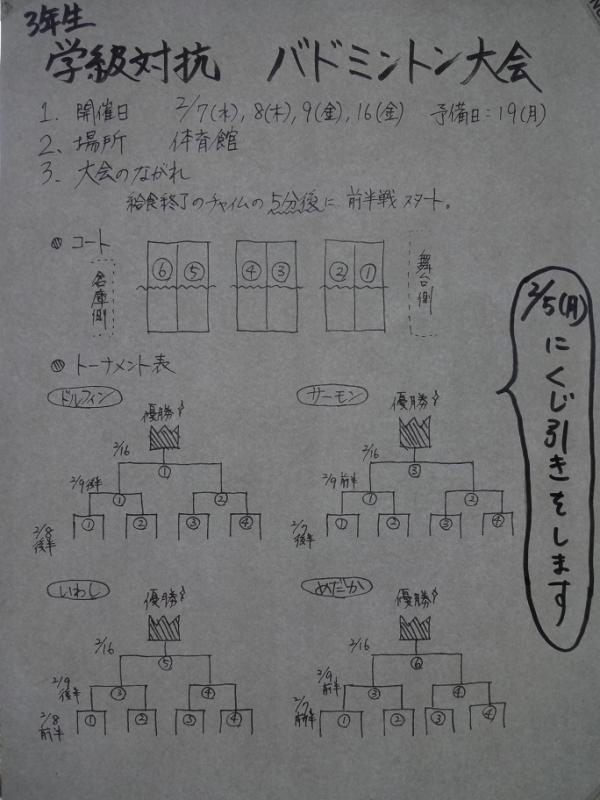 3年生
学級対抗 バドミントン大会
1. 開催日 2/7(水), 8(木), 9(金), 16(金) 予備日:19(月)
2. 場所 体育館
3. 大会のながれ
給食終了のチャイムの5分後に 前半戦スタート。
コート
倉庫側 ⑥ ⑤ ④ ③ ② ① 舞台側
トーナメント表
2/5(月)にくじ引きをします
ドルフィン
優勝
2/16 ①
2/9後半 ① ②
2/8後半 ① ② ③ ④
サーモン
優勝
2/16 ③
2/9前半 ① ②
2/7後半 ① ② ③ ④
いわし
優勝
2/16 ⑤
2/9後半 ③ ④
2/8前半 ① ② ③ ④
めだか
優勝
2/16 ⑥
2/9前半 ③ ④
2/7前半 ① ② ③ ④